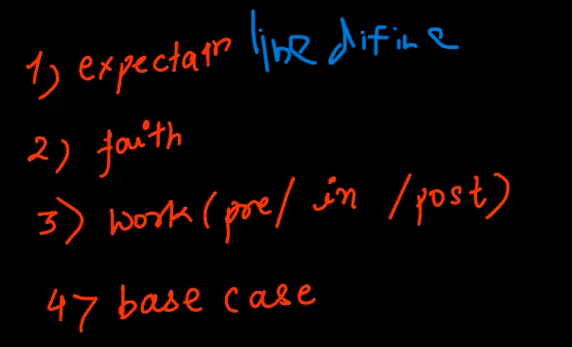 1) expectatn line difine
2) faith
3) work (pre/ in /post)
4) base case